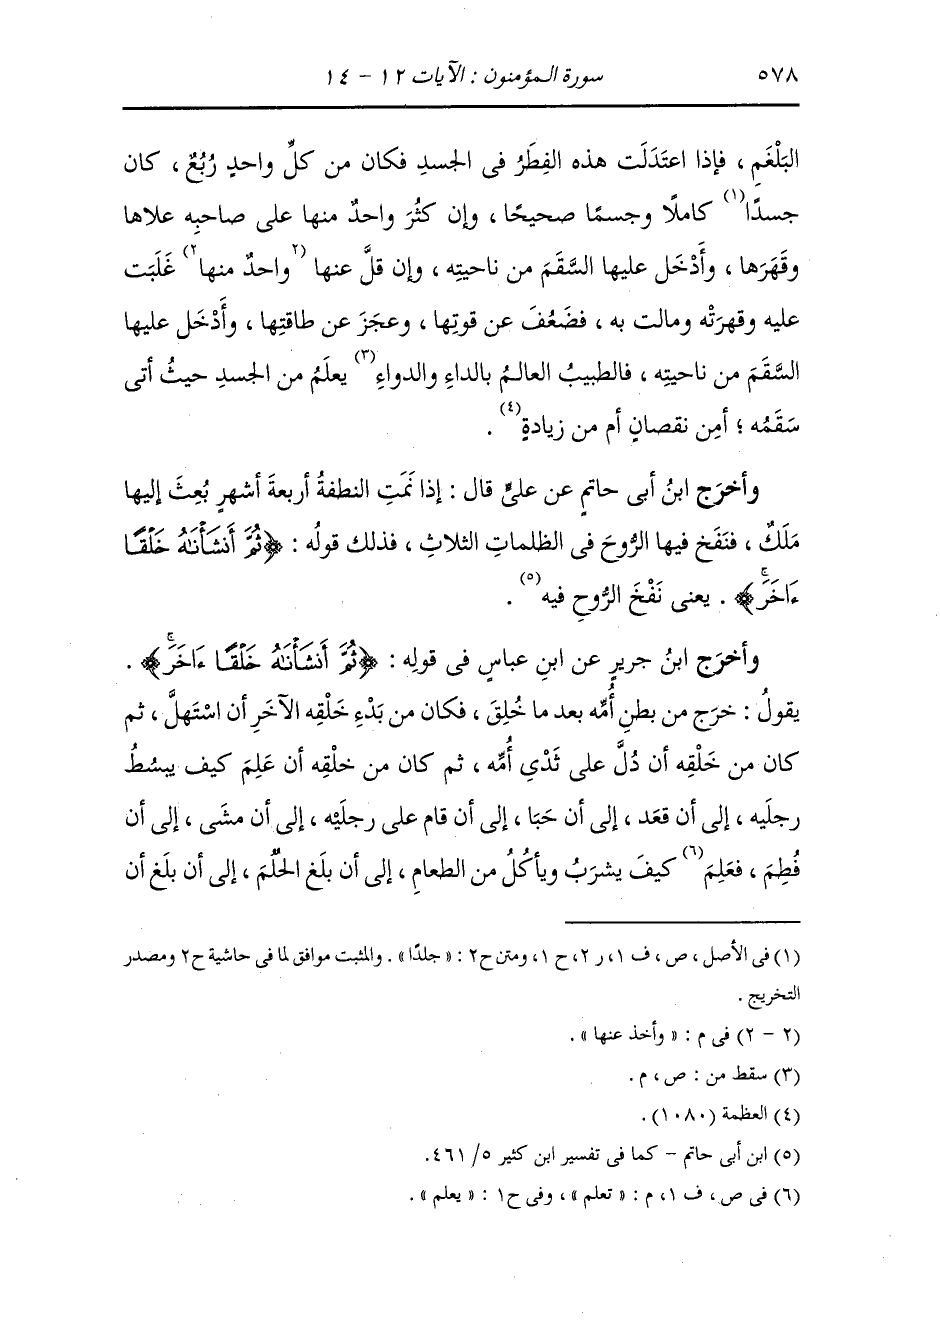 ٥٧٨ سورة المؤمنون : الآيات ١٢ - ١٤
البَلْغَمِ ، فإذا اعتَدَلَت هذه الفِطَرُ فى الجسدِ فكان من كلِّ واحدٍ رُبُعٌ ، كان
جسدًا(١) كاملًا وجسمًا صحيحًا ، وإن كثُرَ واحدٌ منها على صاحبِه علاها
وقَهَرَها ، وأَدْخَل عليها السَّقَمَ من ناحيتِه ، وإن قلَّ عنها (٢واحدٌ منها٢) غَلَبَت
عليه وقهرَتْه ومالت به ، فضَعُفَ عن قوتِها ، وعجَزَ عن طاقتِها ، وأَدْخَل عليها
السَّقَمَ من ناحيتِه ، فالطبيبُ العالمُ بالداءِ والدواءِ(٣) يعلَمُ من الجسدِ حيثُ أتى
سَقَمُه ؛ أمِن نقصانٍ أم من زيادةٍ(٤) .
وأخرَج ابنُ أبى حاتمٍ عن علىٍّ قال : إذا نَمَتِ النطفةُ أربعةَ أشهرٍ بُعِثَ إليها
مَلَكٌ ، فنَفَخ فيها الرُّوحَ فى الظلماتِ الثلاثِ ، فذلك قولُه : ﴿ثُمَّ أَنشَأْنَٰهُ خَلْقًا
ءَاخَرَۚ﴾ . يعنى نَفْخَ الرُّوحِ فيه(٥) .
وأخرَج ابنُ جريرٍ عن ابنِ عباسٍ فى قولِه : ﴿ثُمَّ أَنشَأْنَٰهُ خَلْقًا ءَاخَرَۚ﴾ .
يقولُ : خرَج من بطنِ أُمِّه بعد ما خُلِقَ ، فكان من بَدْءِ خَلْقِه الآخَرِ أن اسْتَهلَّ ، ثم
كان من خَلْقِه أن دُلَّ على ثَدْىِ أُمِّه ، ثم كان من خلْقِه أن عَلِمَ كيف يبسُطُ
رجلَيه ، إلى أن قعَد ، إلى أن حَبَا ، إلى أن قام على رجلَيْه ، إلى أن مشَى ، إلى أن
فُطِمَ ، فعَلِمَ(٦) كيفَ يشرَبُ ويأكُلُ من الطعامِ ، إلى أن بلَغ الحُلُمَ ، إلى أن بلَغ أن
(١) فى الأصل ، ص ، ف ١، ر ٢، ح ١، ومتن ح٢ : « جلدًا » . والمثبت موافق لما فى حاشية ح٢ ومصدر
التخريج .
(٢ - ٢) فى م : « وأخذ عنها » .
(٣) سقط من : ص ، م .
(٤) العظمة (١٠٨٠) .
(٥) ابن أبى حاتم - كما فى تفسير ابن كثير ٥/ ٤٦١.
(٦) فى ص ، ف ١، م : « تعلم » ، وفى ح١ : « يعلم » .